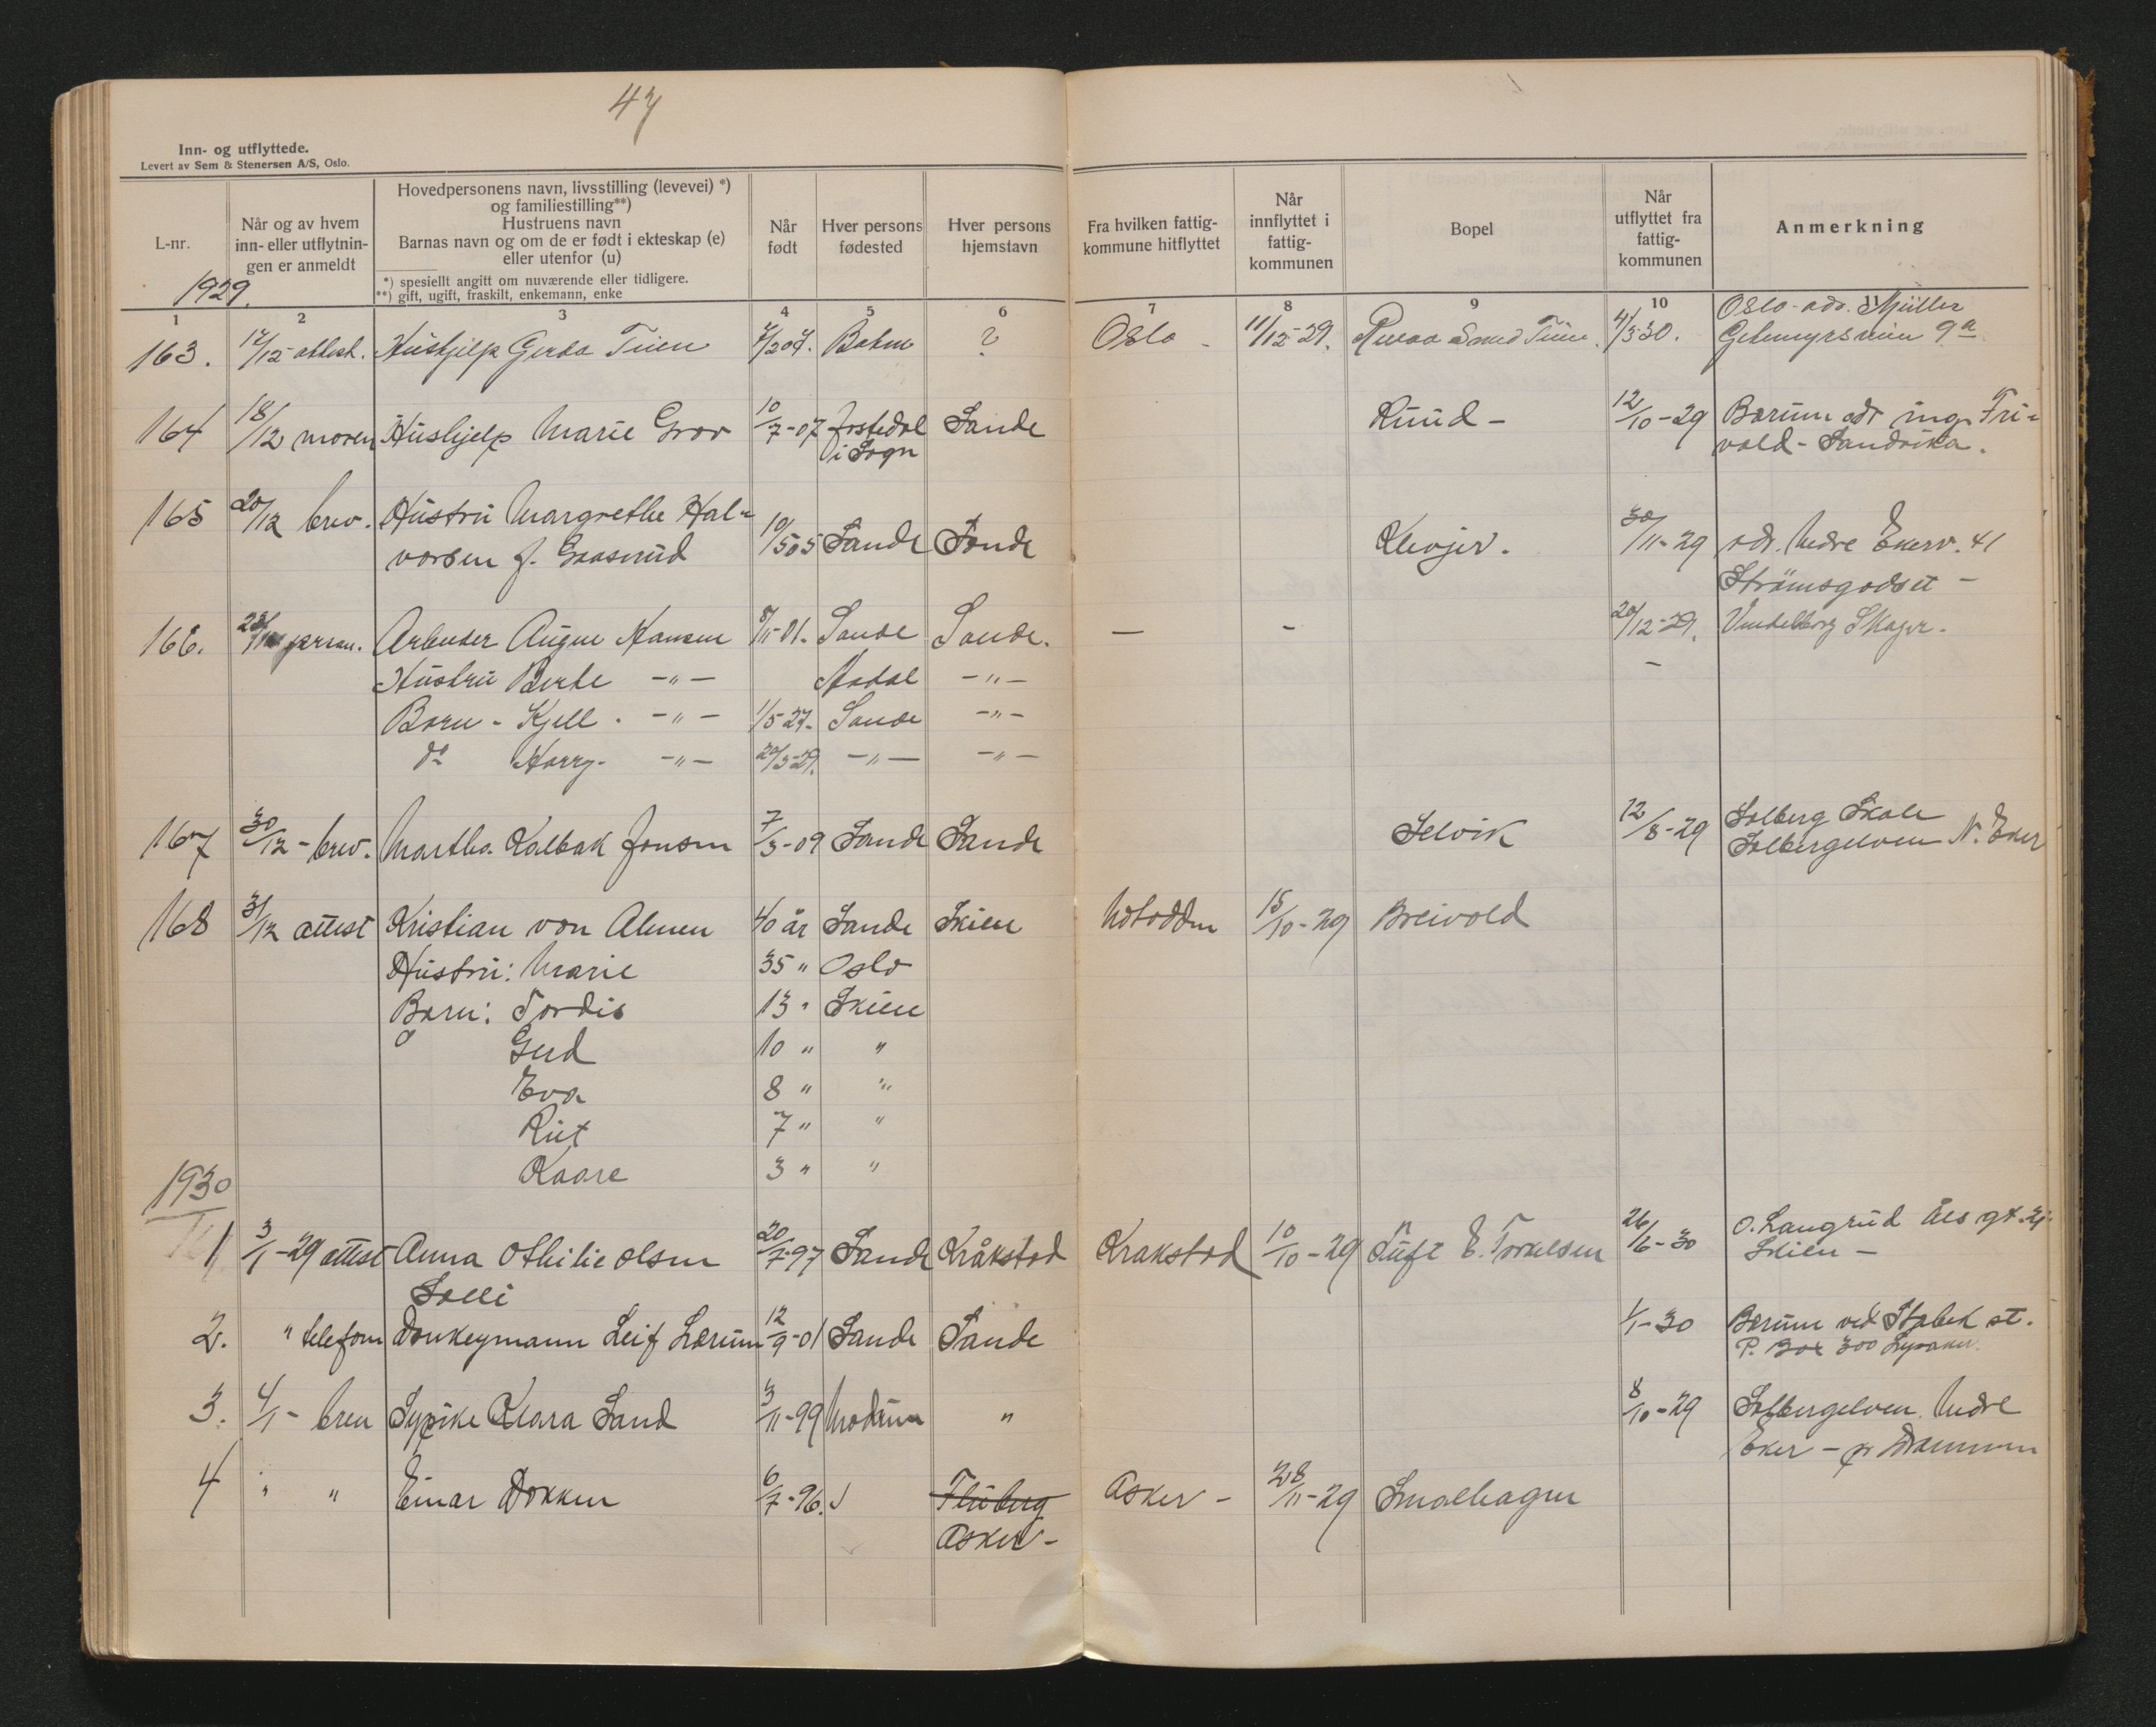 47
Inn- og utflyttede.
Levert av Sem & Stenersen A/S, Oslo.
L-nr.
Når og av hvem
inn- eller utflytnin-
gen er anmeldt
Hovedpersonens navn, livsstilling (levevei) *)
og familiestilling**)
Hustruens navn
Barnas navn og om de er født i ekteskap (e)
eller utenfor (u)
*) spesiellt angitt om nuværende eller tidligere.
**) gift, ugift, fraskilt, enkemann, enke
Når
født
Hver persons
fødested
Hver persons
hjemstavn
Fra hvilken fattig-
kommune hitflyttet
Når
innflyttet i
fattig-
kommunen
Bopel
Når
utflyttet fra
fattig-
kommunen
Anmerkning
1929.
1 2 3 4 5 6 7 8 9 10 11
Oslo - adr. Müller
163. 17/12 attest. Hushjelp Gerda Tuen ? Oslo - 11/12-29. 4/3 30. 9a
164 18/12 moren Hushjelp Marie Grov 10/7-07 Jostedal Sande Ruud - 12/10-29 Bærum adr ing. Fri-
i Sogn vold - Sandvika.
165 20/12 brev. Hustru Margrethe Hal- 30/11-29 adr. Nedre Ekerv. 41
vorsen f. Graserud 10/5 05 Sande Sande Klevjer. Strömsgodset -
166. person. Arbeider August Hansen 8/11-01. Sande Sande. — - 20/12-29. Skoger.
Hustru Berte -"- Aadal -"- -
Barn - Kjell. -"- 1/5-27. Sande -"-
do Harry. -"- 20/3-29. -"- -"-
167 30/12 - brev. Martha Kolbak Jensen 7/3-09 Sande Sande Selvik 12/8-29 Solberg Skole
Solbergelven N. Eker
168 31/12 attest Kristian von Almen 40 år Sande Skien Notodden 15/10-29 Breivold
Hustru: Marie 35 " Oslo
Barn: Tordis 13 " Skien
Gerd 10 " "
Eva 8 " "
Rut 7 " "
Kaare 3 " "
1930
1 3/1-29 attest Anna Othilie Olsen 20/7-97 Sande Kråkstad Krakstad 10/10-29 Tuft E. Torkelsen 26/6-30 O. Langrud Åls gt. 21
Solli Skien -
2. " telefon Donkeymann Leif Lærum 12/9-01 Sande Sande 1/1-30 Bærum ved Stabek st.
P. Box 300 Lysaker.
3. 4/1- brev Sypike Klara Sand 3/11-99 Modum " 8/10-29 Solbergelven Nedre
Eker - pr Drammen
4 " " Einar Dokken 6/7-96. Fluberg Asker - 28/11-29 Smalhagen
Asker -